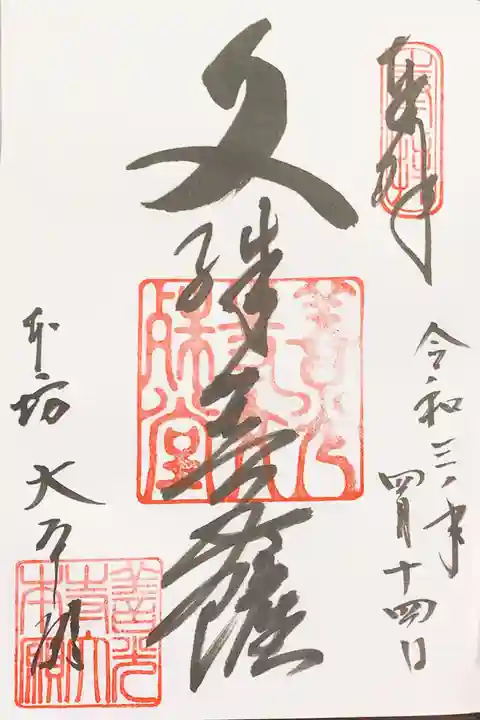 奉拝
令和三年
四月十四日
文殊菩薩
本坊 大本願